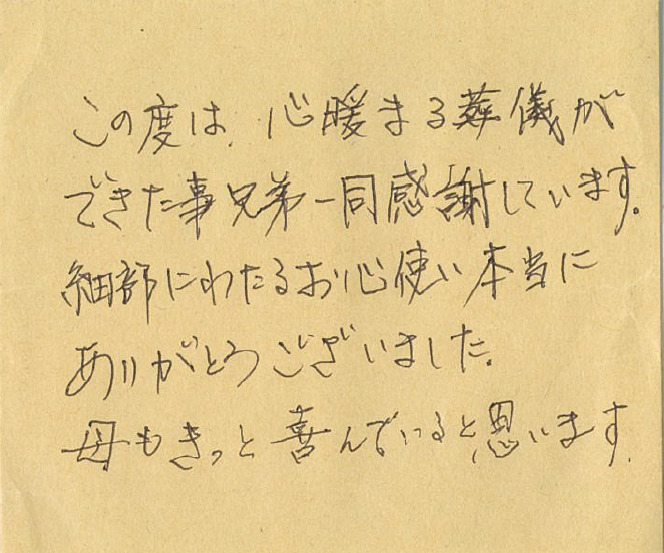 この度は、心暖まる葬儀が
できた事兄弟一同感謝しています。
細部にわたるお心使い本当に
ありがとうございました。
母もきっと喜んでいると思います。